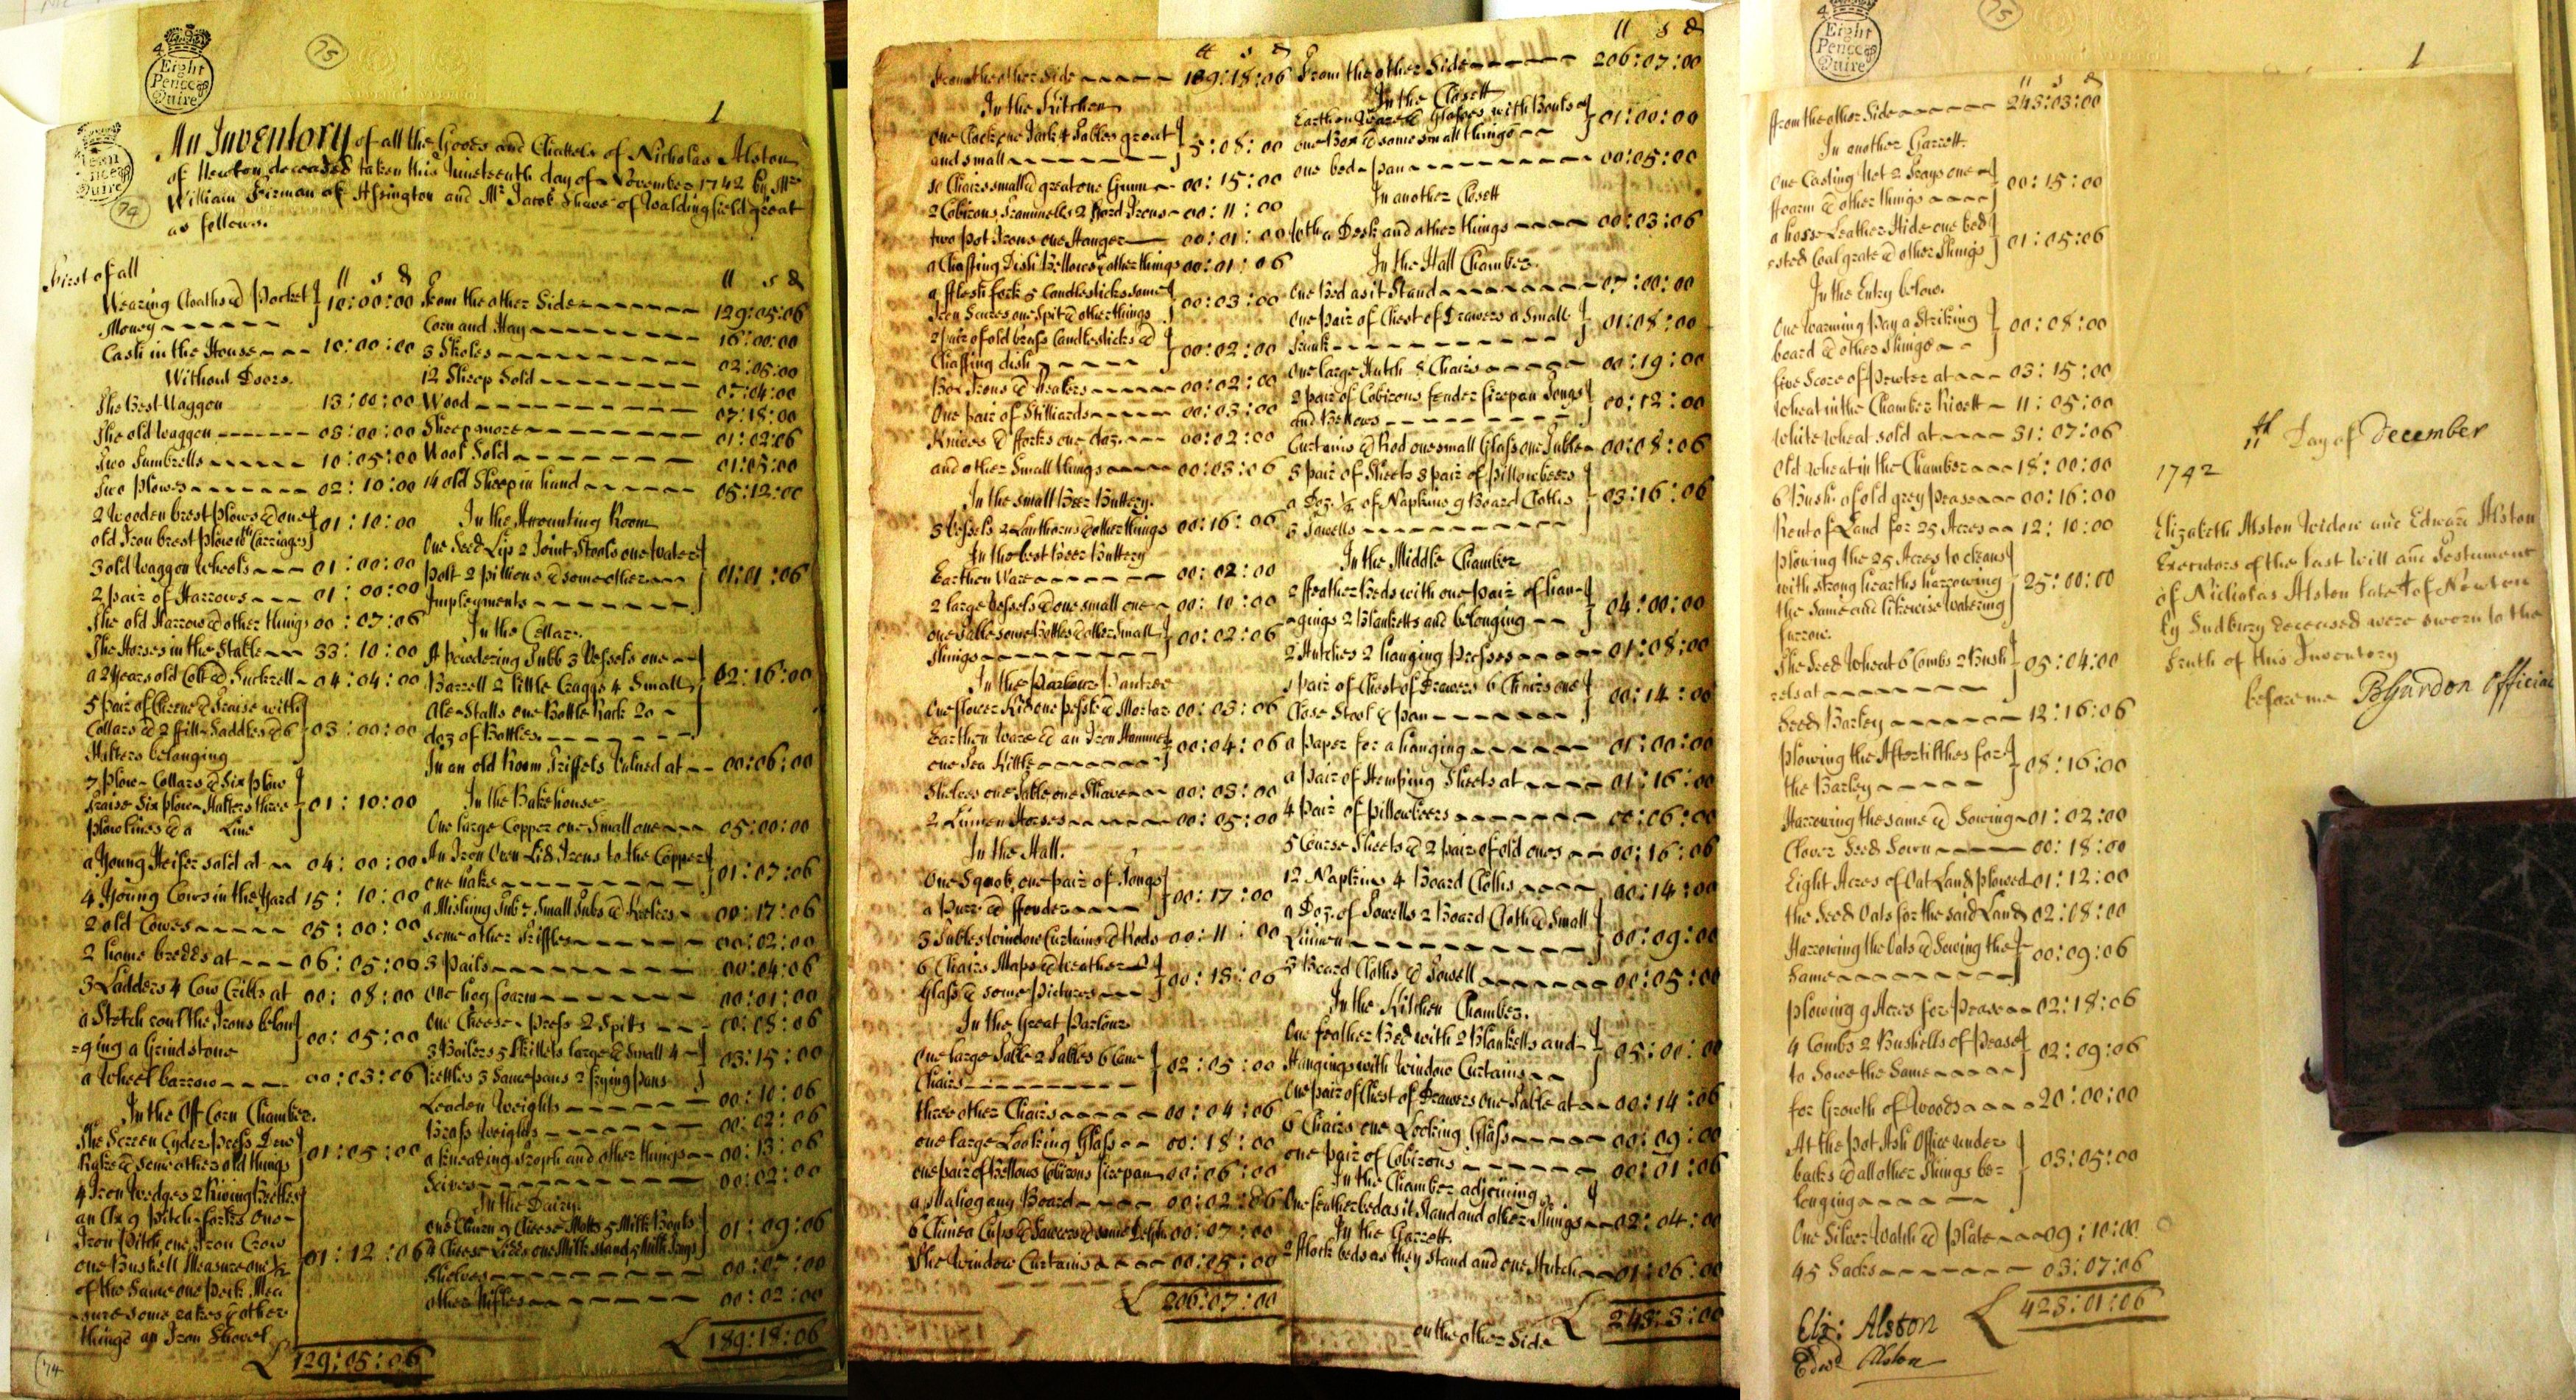 Eight
Pence p
Quire
75
1
An Inventory of all the Goods and Chattels of Nicholas Alston
of Newton deceased taken this Nineteenth day of November 1742 by Mr
William Firman of Assington and Mr Jacob of Waldingfield great
as follows.
74
First of all
ll s d
Wearing Cloaths & Pocket
Money 10:00:00
Cash in the House 10:00:00
Without Doors.
The Best Waggon 13:00:00
The old Waggon 08:00:00
Two Tumbrells 10:05:00
Two Plows 02:10:00
2 Wooden brest plows & one
old Iron brest plow wth Carriages 01:10:00
3 old Waggon Wheels 01:00:00
2 pair of Harrows 01:00:00
The old Harrow & other things 00:07:06
The Horses in the Stable 33:10:00
a 2 Years old Colt & Suckrell 04:04:00
5 pair of & Traise with
Collars & 2 ffill Saddles & 6
Halters belonging 03:00:00
7 plow Collars & Six plow
Traise Six plow Halters three
plow lines & a Line 01:10:00
a Young Heifer sold at 04:00:00
4 Young Cows in the Yard 15:10:00
2 old Cowes 05:00:00
2 home bredds at 06:05:00
3 Ladders 4 Cow Cribbs at 00:08:00
a Stetch roul the Irons belon
ging a Grindstone 00:05:00
a Wheel barrow 00:03:06
In the Off Corn Chamber.
The Screen Cyder Press Dew
Rake & some other old things 01:05:00
4 Iron Wedges 2 Riving Beetles
an Ax 9 Pitch-forks One
Iron Pitch one Iron Crow
one Bushell Measure one ½
of the Same one Peck Mea
sure some rakes & other
things an Iron Shovel 01:12:06
£ 129:05:06
ll s d
From the other Side 129:05:06
Corn and Hay 16:00:00
3 Skoles 02:05:00
12 Sheep Sold 07:04:00
Wood 07:18:00
Sheep more 01:02:06
Wool Sold 01:05:00
14 old Sheep in hand 05:12:00
In the Room
One Seed Lip 2 Joint Stools one Water
Pott 2 pillions & some other
Implements 01:01:06
In the Cellar.
A powdering Tubb 3 Vessels one
Barrell 2 little Craggs 4 Small
Ale-Stalls one Bottle Rack 20
doz of Bottles 02:16:00
In an old Room Triffels Valued at 00:06:00
In the Bakehouse
One large Copper one Small one 05:00:00
An Iron Oven Lid Irons to the Copper
one hake 01:07:06
a Mishing Tub 7 Small Tubs & Keelers 00:17:06
Some other Triffles 00:02:00
3 Pails 00:04:06
One hog foarm 00:01:00
One Cheese Press 2 Spitts 00:08:06
3 Boilers 5 Skillets large & Small 4
Kettles 3 Sawspans 2 frying pans 03:15:00
Leaden Weights 00:10:06
Brass Weights 00:02:06
a kneading Troph and other things 00:13:06
Seives 00:02:00
In the Dairy.
one Churn 9 Cheese Motts 5 Milk Bowls
4 Cheese one Milk Stand 5 Milk 01:09:06
Shelves 00:07:00
other Trifles 00:02:00
£ 189:18:06
ll s d
From the other Side 189:18:06
In the Kitchen
One Clock one Jack 4 Tables great
and small 5:08:00
10 Chairs small & great one Gunn 00:15:00
2 Cobirons Trammells 2 Irons 00:11:00
two pot Irons one Hanger 00:01:00
a Chaffing Dish Bellows & other things 00:01:06
a fflesh fork 5 Candlesticks some
Iron Scures one Spit & other things 00:03:00
2 pair of old brass Candlesticks &
Chaffing dish 00:02:00
Box Irons & heaters 00:02:00
One pair of Stilliards 00:03:00
Knives & fforks one doz. 00:02:00
and other Small things 00:03:06
In the small Beer Buttery.
5 Vessels 2 Lanthorns & other things 00:16:06
In the best Beer Buttery
Earthen Ware 00:02:00
2 large Vessels & one small one 00:10:00
one Table some Bottles & other Small
things 00:02:06
In the Parlour Pantree
One flower Kid one pestle & Mortar 00:03:06
Earthen ware & an Iron
one Tea Kittle 00:04:06
Shelves one Table one 00:03:00
2 Linnen Horses 00:05:00
In the Hall.
One Squob, one pair of Tongs
a Purr & ffender 00:17:00
3 Tables window Curtains & Rods 00:11:00
6 Chairs Maps & Weather
Glass & some Pictures 00:18:06
In the Great Parlour
One large Table 2 Tables 6 Cane
Chairs 02:05:00
three other Chairs 00:04:06
one large Looking Glass 00:18:00
one pair of Bellows Cobirons firepan 00:06:00
a Mahogany Board 00:02:06
6 Chinea Cups & Sawcers & some Delph 00:07:00
The Window Curtains 00:05:00
£ 206:07:00
ll s d
From the other Side 206:07:00
In the Closett
Earthen Ware & Glasses with Books
one Box & some small things 01:00:00
one bed-pan 00:05:00
In another Closett
with a Desk and other things 00:03:06
In the Hall Chamber.
One Bed as it Stand 07:00:00
One pair of Chest of Drawers a Small
Trunk 01:08:00
One large Hutch 8 Chairs 00:19:00
2 pair of Cobirons fender firepan Tongs
and Bellows 00:12:00
Curtains & Rod one small Glass one Table 00:08:06
5 pair of Sheets 3 pair of pillowbeers
a Doz ½ of Napkins 9 Board Cloths
3 Towells 03:16:06
In the Middle Chamber
2 ffeather Beds with one pair of han
gings 2 Blanketts and belonging 04:00:00
2 Hutches 2 hanging Presses 01:08:00
1 pair of Chest of Drawers 6 Chairs one
Close Stool & pan 00:14:00
a paper for a hanging 01:00:00
a pair of Hemping Sheets at 01:16:00
4 pair of pillowbeers 00:06:00
5 Course Sheets & 2 pair of old ones 00:16:06
12 Napkins 4 Board Cloths 00:14:00
a Doz. of Towells 2 Board Cloth & Small
Linnen 00:09:00
3 Board Cloths & Towell 00:05:00
In the Kitchen Chamber.
One feather Bed with 2 Blanketts and
Hangings with Window Curtains 05:00:00
One pair of Chest of Drawers one Table at 00:14:06
6 Chairs one Looking Glass 00:09:00
one pair of Cobirons 00:01:06
In the Chamber adjoining
One featherbed as it Stand and other things 02:04:00
In the Garrett.
2 fflock beds as they Stand and one Hutch 01:06:00
£ 243:3:00
on the other Side
Eight
Pence p
Quire
75
1
ll s d
ffrom the other Side 243:03:00
In another Garrett.
One Casting Net 2 Trays one
fform & other things 00:15:00
a horse Leather Hide one bed
sted Coal grate & other things 01:05:06
In the Entry below.
One Warming Pan a Striking
board & other things 00:08:00
five Score of Pewter at 03:15:00
Wheat in the Chamber 11:05:00
White wheat sold at 31:07:06
Old wheat in the Chamber 18:00:00
6 Bush. of old grey Pease 00:16:00
Rent of Land for 25 Acres 12:10:00
Plowing the 25 Acres to cleans
with strong hearths harrowing
the Same and likewise Watering
furrow. 25:00:00
The Seed Wheat 6 Combs 2 Bush
rels at 05:04:00
Seed Barley 12:16:06
Plowing the Aftertilthes for
the Barley 08:16:00
Harrowing the same & Sowing 01:02:00
Clover Seed Sown 00:18:00
Eight Acres of Oat Land plowed 01:12:00
the Seed Oats for the said Land 02:08:00
Harrowing the Oats & Sowing the
Same 00:09:06
Plowing 9 Acres for Pease 02:18:06
4 Combs 2 Bushells of Pease
to Sowe the Same 02:09:06
for Growth of Woods 20:00:00
At the Pot Ash Office under
backs & all other things be=
longing 03:05:00
One Silver Watch & Plate 09:10:00
45 Sacks 03:07:06
£ 423:01:06
Eliz: Alston
Edwd Alston
11th Day of December
1742
Elizabeth Alston Widow and Edward Alston
Executors of the last Will and Testament
of Nicholas Alston late of Newton
by Sudbury deceased were sworn to the
truth of this Inventory
before me Official